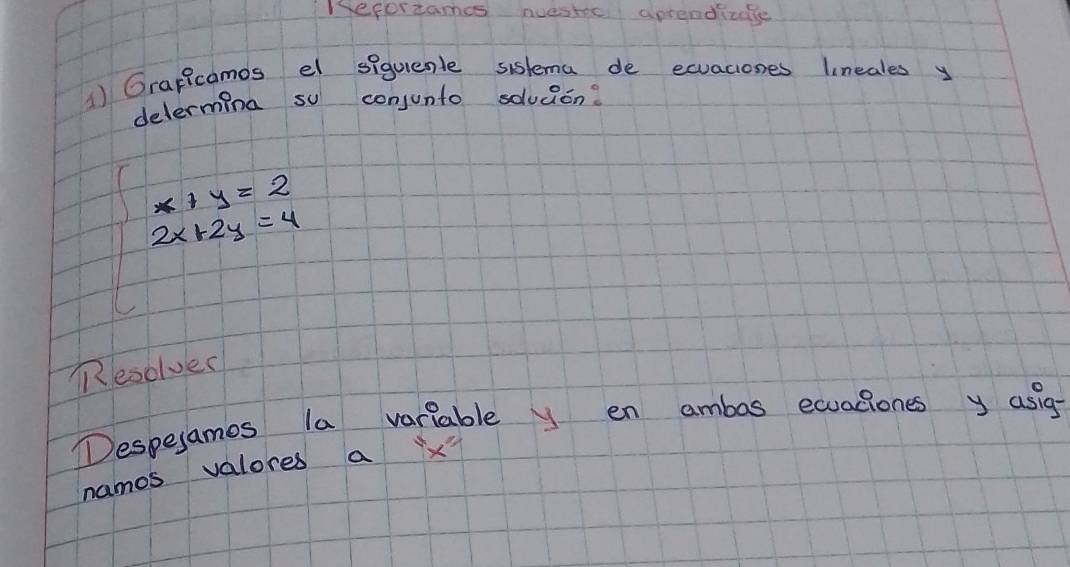 Reforzamos nuestro aprendizaje
1) Graficamos el siguiente sistema de ecuaciones lineales y
determina su conjunto solución:
x + y = 2
2x + 2y = 4
Resolver
Despejamos la variable y en ambas ecuaciones y asig-
namos valores a "x"